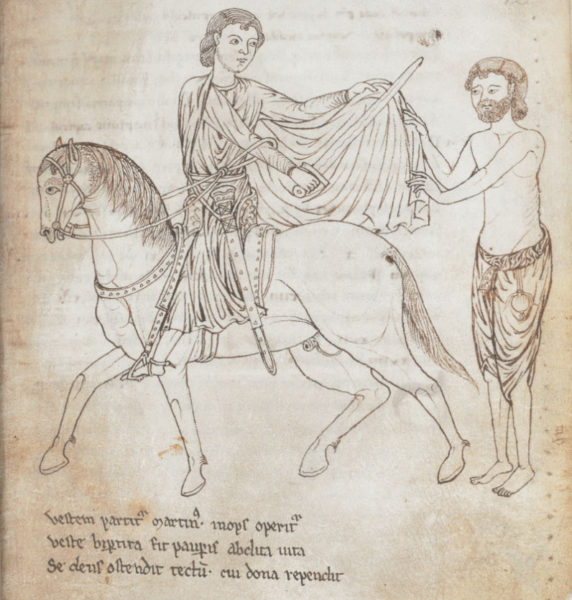 vestem partit᷑ martinꝰ· inops operit᷑
veste biꝑtita fit pauꝑis abdita uita
Se deus ostendit tectū· cui dona rependit